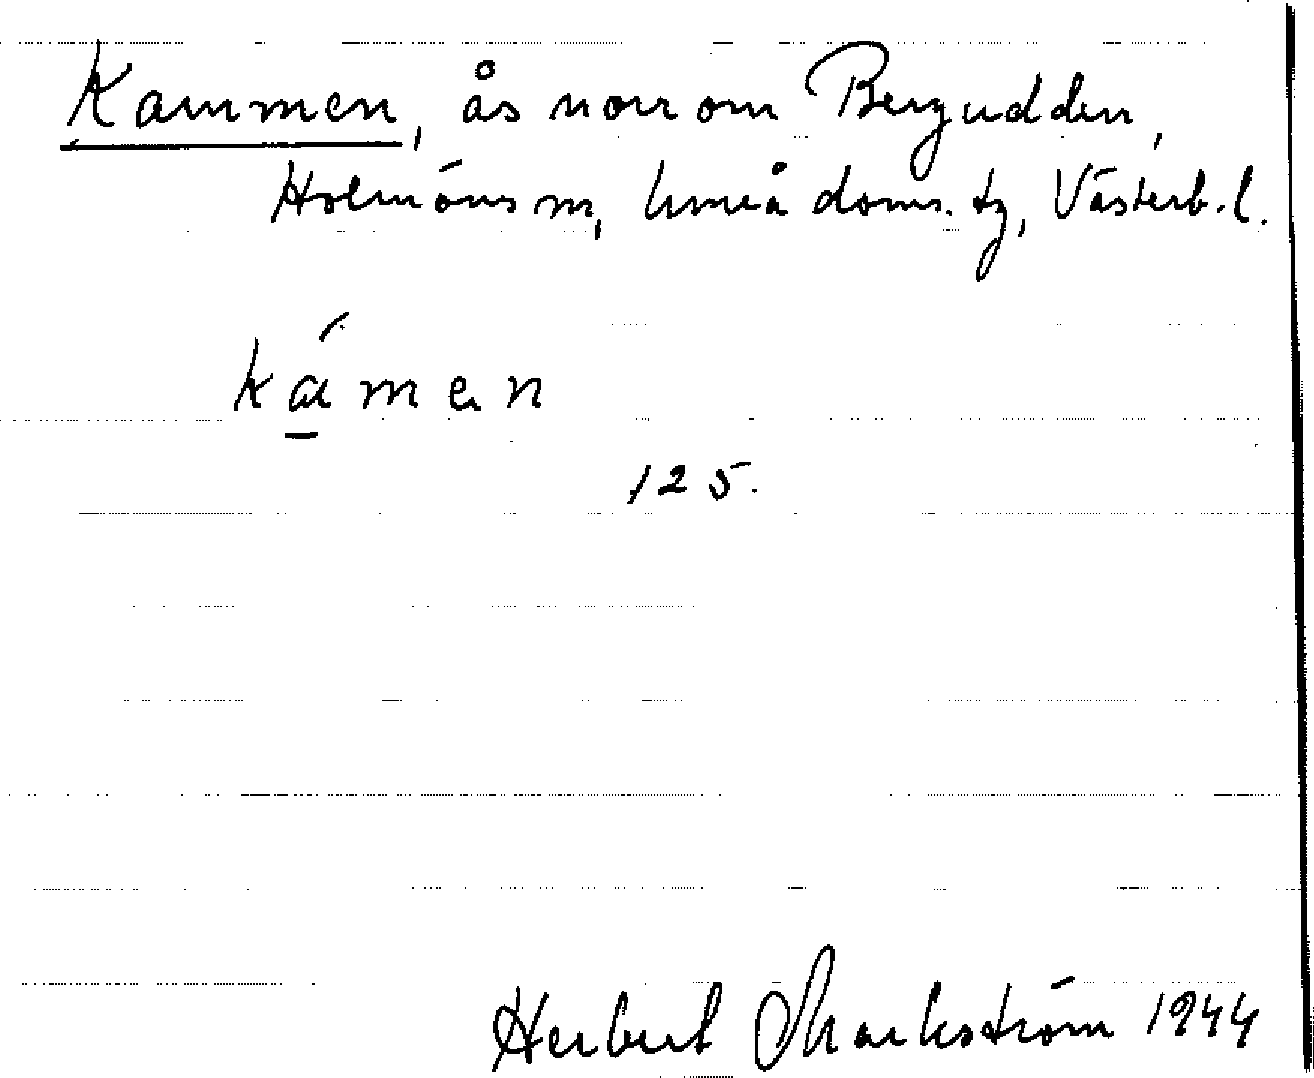 Kammen, ås norr om Bergudden,
Holmöns sn, Umeå doms. tg, Västerb. l.
kámen
125.
Herbert Markström 1944